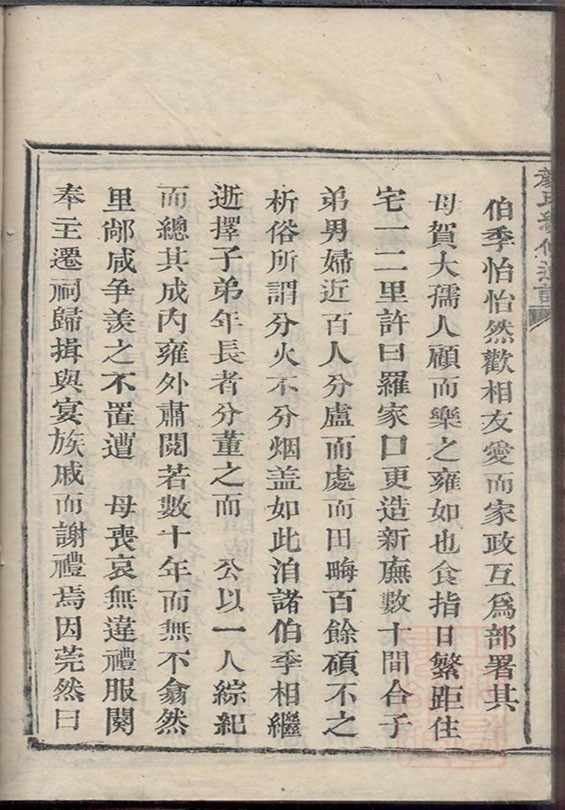 伯季怡怡然歡相友愛而家政互爲部署其
母賀大孺人顧而樂之雍如也食指日繁距住
宅一二里許曰羅家口更造新廡數十間合子
弟男婦近百人分盧而處而田畮百餘碩不之
析俗所謂分火不分烟盖如此洎諸伯季相繼
逝擇子弟年長者分董之而　公以一人綜紀
而總其成內雍外肅閱若數十年而無不翕然
里鄰咸争羨之不置遭　母喪哀無違禮服闋
奉主遷祠歸揖與宴族戚而謝禮焉因莞然曰